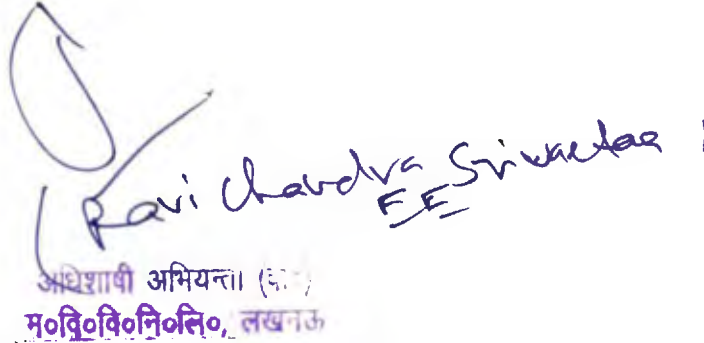 Ravi Chandra Srivastava
EE
अधिशाषी अभियन्ता
म०वि०वि०नि०लि०, लखनऊ